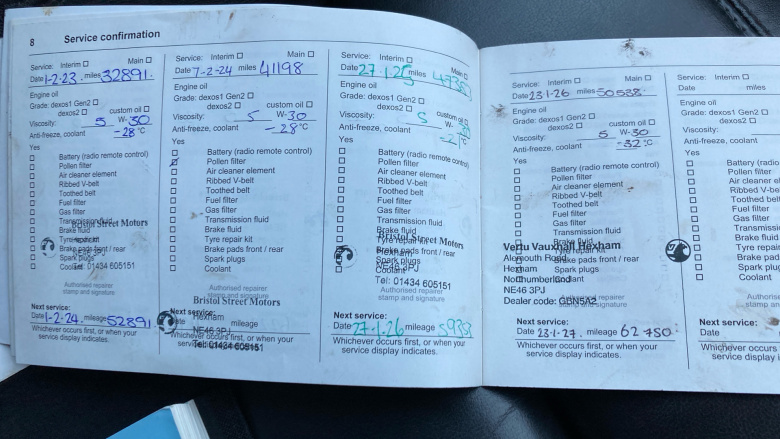 8 Service confirmation
Service: Interim Main
Date 1-2-23. miles 32891.
Engine oil
Grade: dexos1 Gen2
dexos2 custom oil
Viscosity: 5 W-30
Anti-freeze, coolant -28°C
Yes
Battery (radio remote control)
Pollen filter
Air cleaner element
Ribbed V-belt
Toothed belt
Fuel filter
Gas filter
Transmission fluid
Brake fluid
Tyre repair kit
Brake pads front / rear
Spark plugs
Coolant
Bristol Street Motors
Tel: 01434 605151
Authorised repairer
stamp and signature
Next service:
Date 1-2-24. mileage 52891
Whichever occurs first, or when your
service display indicates.
Service: Interim Main
Date 7-2-24 miles 41198
Engine oil
Grade: dexos1 Gen2
dexos2 custom oil
Viscosity: 5 W-30
Anti-freeze, coolant -28°C
Yes
Battery (radio remote control)
Pollen filter
Air cleaner element
Ribbed V-belt
Toothed belt
Fuel filter
Gas filter
Transmission fluid
Brake fluid
Tyre repair kit
Brake pads front / rear
Spark plugs
Coolant
Authorised repairer
stamp and signature
Bristol Street Motors
Hexham
NE46 3PJ
Tel: 01434 605151
Next service:
Date mileage
Whichever occurs first, or when your
service display indicates.
Service: Interim Main
Date 27.1.25 miles
Engine oil
Grade: dexos1 Gen2
dexos2 custom oil
Viscosity: 5 W-30
Anti-freeze, coolant °C
Yes
Battery (radio remote control)
Pollen filter
Air cleaner element
Ribbed V-belt
Toothed belt
Fuel filter
Gas filter
Transmission fluid
Brake fluid
Tyre repair kit
Brake pads front / rear
Spark plugs
Coolant
Bristol Street Motors
Hexham
NE46 3PJ
Tel: 01434 605151
Authorised repairer
stamp and signature
Next service:
Date 27.1.26 mileage
Whichever occurs first, or when your
service display indicates.
Service: Interim Main
Date 23-1-26 miles 50538.
Engine oil
Grade: dexos1 Gen2
dexos2 custom oil
Viscosity: 5 W-30
Anti-freeze, coolant -32°C
Yes
Battery (radio remote control)
Pollen filter
Air cleaner element
Ribbed V-belt
Toothed belt
Fuel filter
Gas filter
Transmission fluid
Brake fluid
Tyre repair kit
Brake pads front / rear
Spark plugs
Coolant
Vertu Vauxhall Hexham
Alemouth Road
Hexham
Northumberland
NE46 3PJ
Dealer code: GBN5A2
Authorised repairer
stamp and signature
Next service:
Date 23-1-27. mileage 62 750
Whichever occurs first, or when your
service display indicates.
Service: Interim
Date miles
Engine oil
Grade: dexos1 Gen2
dexos2
Viscosity:
Anti-freeze, coolant
Yes
Battery (radio
Pollen filter
Air cleaner
Ribbed V-b
Toothed belt
Fuel filter
Gas filter
Transmission
Brake fluid
Tyre repair
Brake pads
Spark plugs
Coolant
Next service:
Date
Whichever occurs
service display i